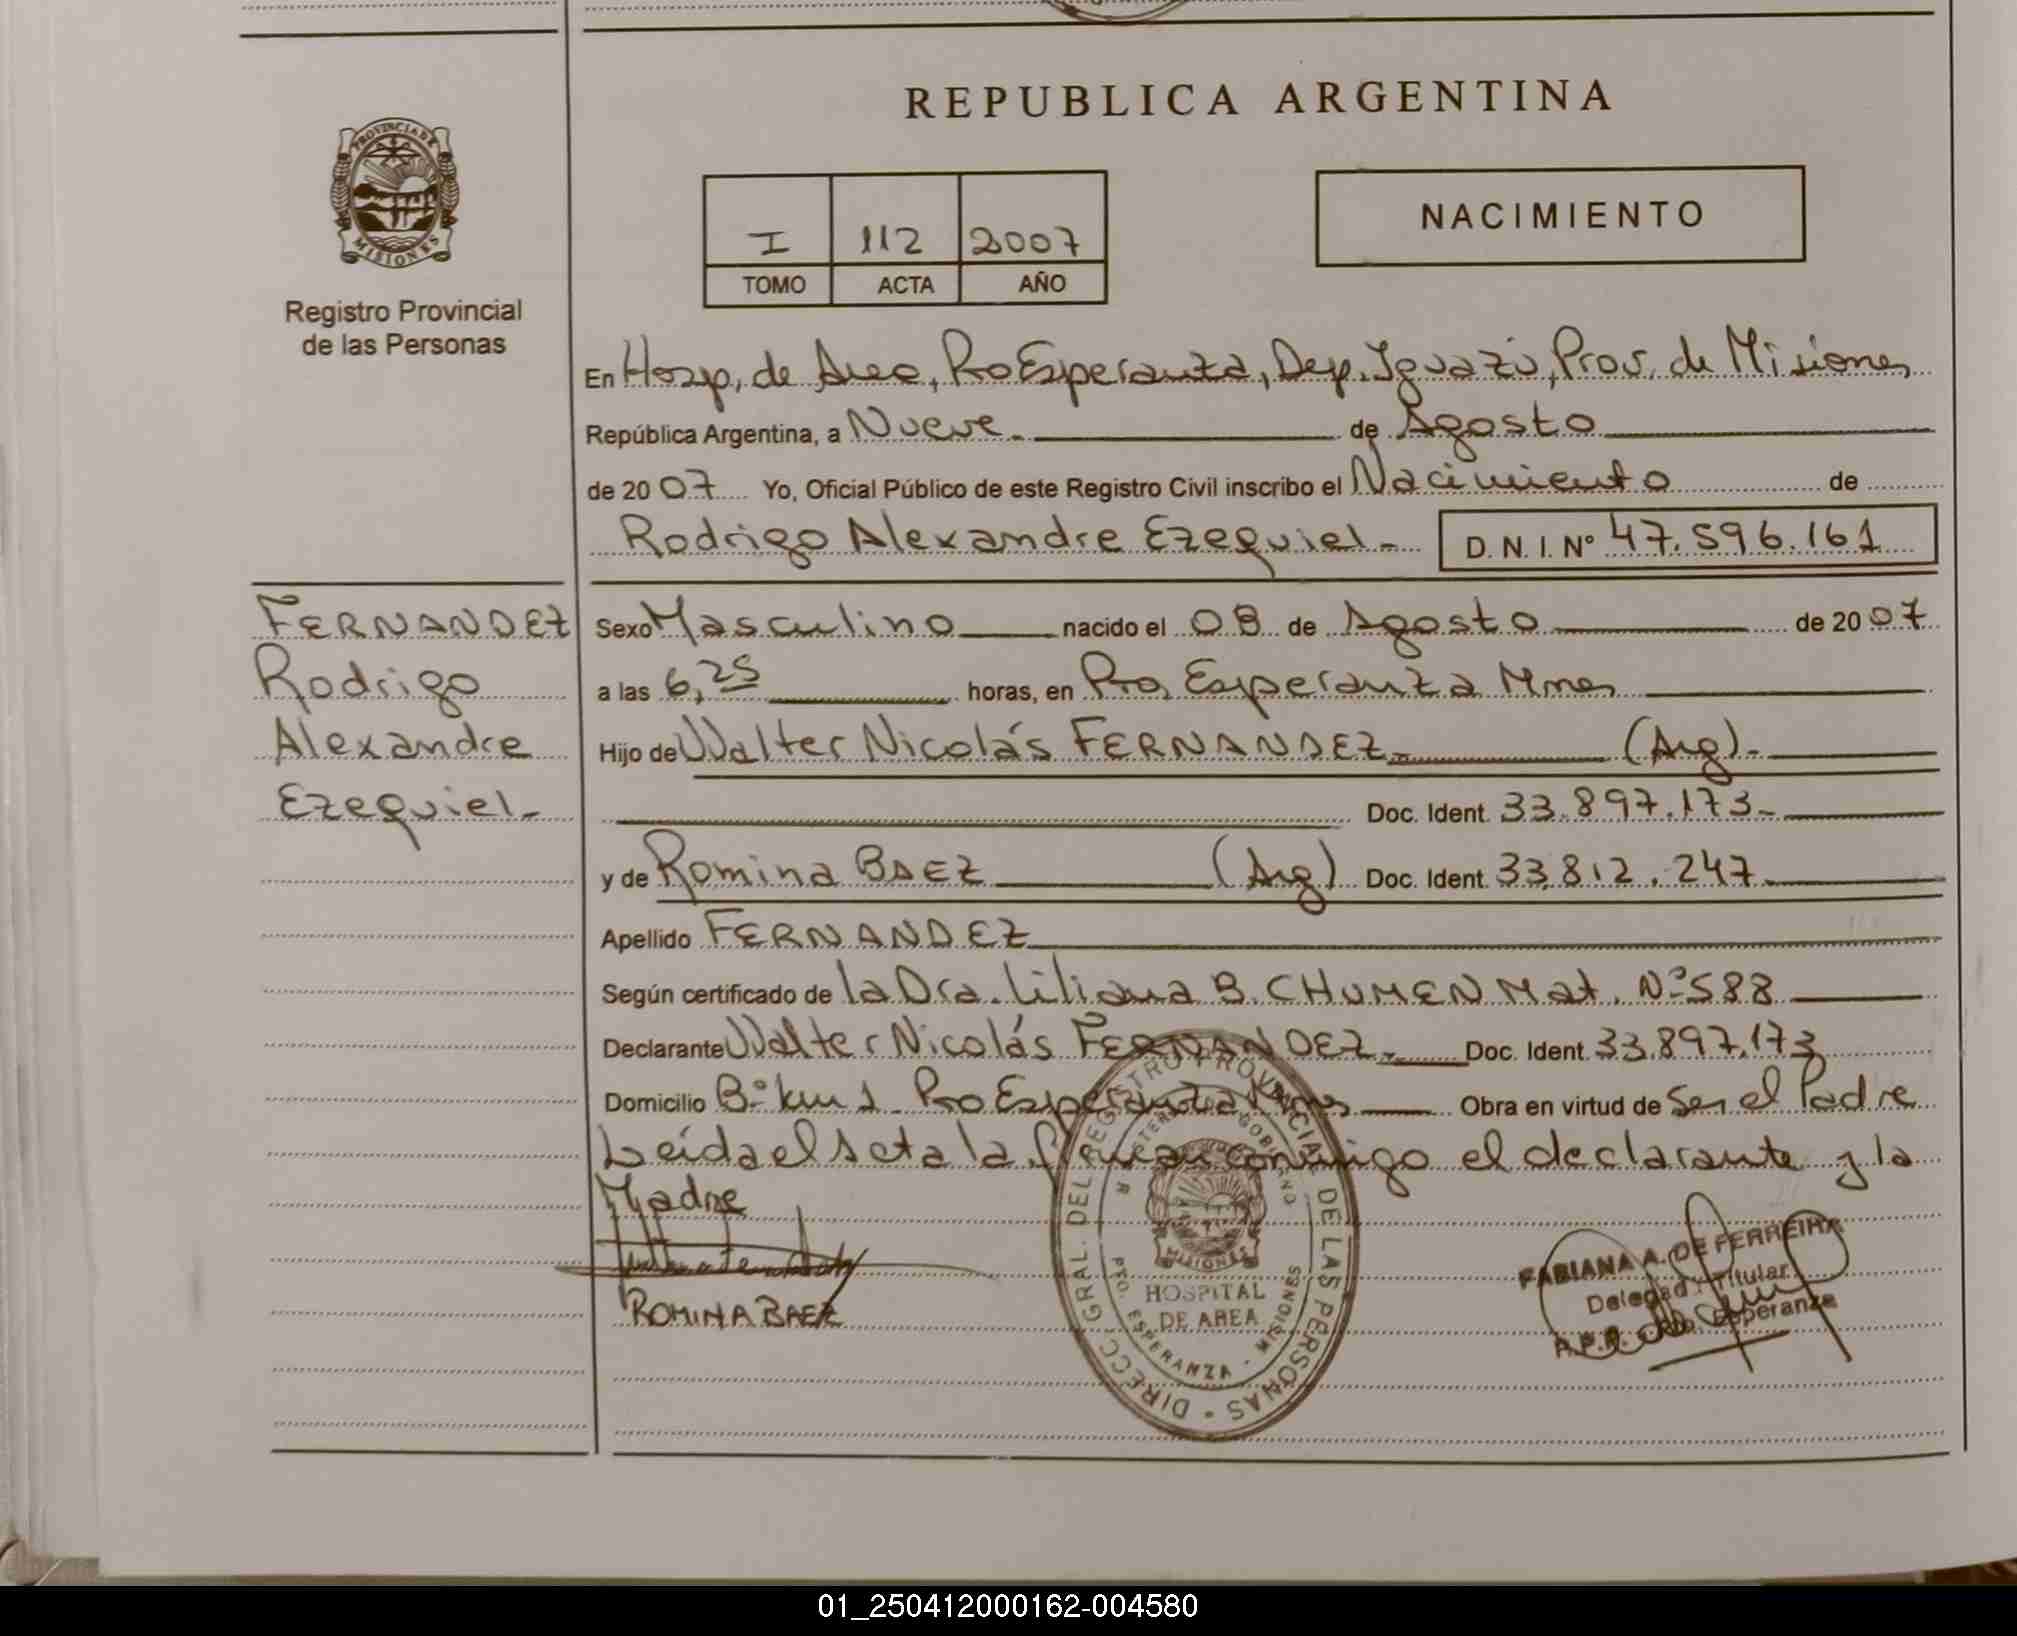 REPUBLICA ARGENTINA
PROVINCIA DE
MISIONES
Registro Provincial
de las Personas
I 112 2007
TOMO ACTA AÑO
NACIMIENTO
En Hosp, de Area, Pto Esperanza, Dep. Iguazú, Prov. de Misiones
República Argentina, a Nueve de Agosto
de 2007 Yo, Oficial Público de este Registro Civil inscribo el Nacimiento de
Rodrigo Alexandre Ezequiel- D. N. I. Nº 47.596.161
FERNANDEZ
Rodrigo
Alexandre
Ezequiel-
Sexo Masculino nacido el 08 de Agosto de 2007
a las 6,25 horas, en Pto, Esperanza Mnes
Hijo de Walter Nicolás FERNANDEZ- (Arg)-
Doc. Ident. 33.897.173-
y de Romina BAEZ (Arg) Doc. Ident. 33.812.247-
Apellido FERNANDEZ
Según certificado de la Dra. Liliana B. CHUMEN Mat. Nº 588
Declarante Walter Nicolás FERNANDEZ- Doc. Ident. 33.897.173
Domicilio Bº km 1 Pto Esperanza Mnes Obra en virtud de Ser el Padre
Leída el Acta la firman conmigo el declarante y la
Madre
ROMINA BAEZ
DIRECC. GRAL. DEL REGISTRO PROVINCIAL DE LAS PERSONAS
MINISTERIO GOBIERNO
MISIONES
HOSPITAL
DE AREA
PTO. ESPERANZA - MISIONES
FABIANA A. DE FERREIRA
Delegada Titular
R.P.P. Pto. Esperanza
01_250412000162-004580